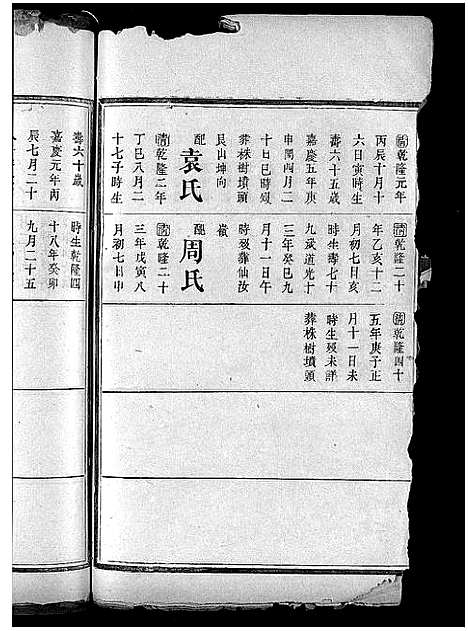 清乾隆元年
丙辰十月十
六日寅時生
壽六十五歲
嘉慶五年庚
申閏四月二
十日巳時歿
葬株樹墳頭
艮山坤向
配袁氏
清乾隆二年
丁巳八月二
十七子時生
清乾隆二十
年乙亥十二
月初七日亥
時生壽七十
九歲道光十
三年癸巳九
月十一日午
時歿葬仙汝
嶺
配周氏
清乾隆二十
三年戊寅八
月初七日申
清乾隆四十
五年庚子正
月十一日未
時生歿未詳
葬株樹墳頭
壽六十歲
嘉慶元年丙
辰七月二十
時生乾隆四
十八年癸卯
九月二十五